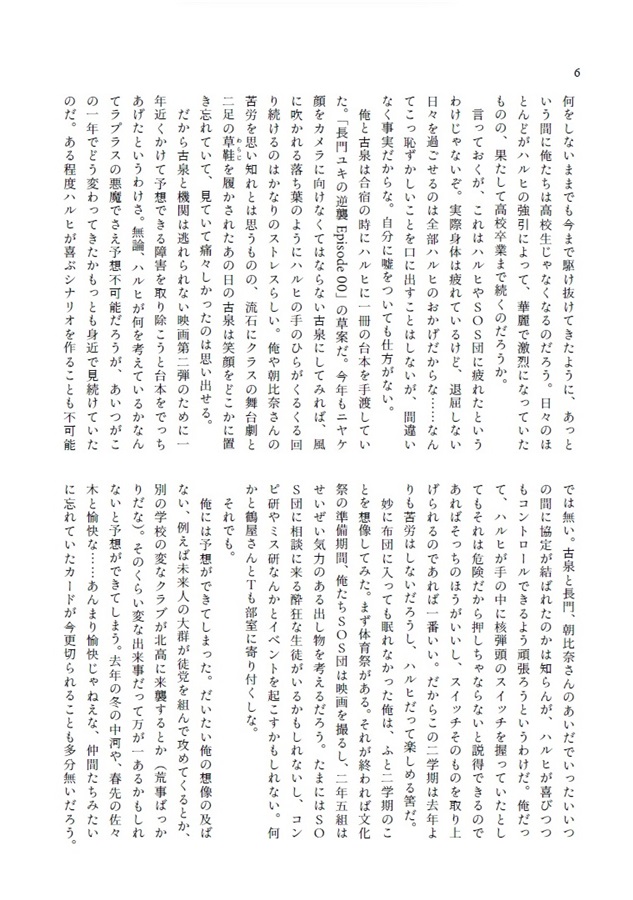 6
何をしないままでも今まで駆け抜けてきたように、あっと
いう間に俺たちは高校生じゃなくなるのだろう。日々のほ
とんどがハルヒの強引によって、華麗で激烈になっていた
ものの、果たして高校卒業まで続くのだろうか。
　言っておくが、これはハルヒやSOS団に疲れたという
わけじゃないぞ。実際身体は疲れているけど、退屈しない
日々を過ごせるのは全部ハルヒのおかげだからな……なん
てこっ恥ずかしいことを口に出すことはしないが、間違い
なく事実だからな。自分に嘘をついても仕方がない。
　俺と古泉は合宿の時にハルヒに一冊の台本を手渡してい
た。「長門ユキの逆襲 Episode 00」の草案だ。今年もニヤケ
顔をカメラに向けなくてはならない古泉にしてみれば、風
に吹かれる落ち葉のようにハルヒの手のひらがくるくる回
り続けるのはかなりのストレスらしい。俺や朝比奈さんの
苦労を思い知れとは思うものの、流石にクラスの舞台劇と
二足の草鞋を履かされたあの日の古泉は笑顔をどこかに置
わらじ
き忘れていて、見ていて痛々しかったのは思い出せる。
　だから古泉と機関は逃れられない映画第二弾のために一
年近くかけて予想できる障害を取り除こうと台本をでっち
あげたというわけさ。無論、ハルヒが何を考えているかなん
てラプラスの悪魔でさえ予想不可能だろうが、あいつがこ
の一年でどう変わってきたかもっとも身近で見続けていた
のだ。ある程度ハルヒが喜ぶシナリオを作ることも不可能
では無い。古泉と長門、朝比奈さんのあいだでいったいいつ
の間に協定が結ばれたのかは知らんが、ハルヒが喜びつつ
もコントロールできるよう頑張ろうというわけだ。俺だっ
て、ハルヒが手の中に核弾頭のスイッチを握っていたとし
てもそれは危険だから押しちゃならないと説得できるので
あればそっちのほうがいいし、スイッチそのものを取り上
げられるのであれば一番いい。だからこの二学期は去年よ
りも苦労はしないだろうし、ハルヒだって楽しめる筈だ。
　妙に布団に入っても眠れなかった俺は、ふと二学期のこ
とを想像してみた。まず体育祭がある。それが終われば文化
祭の準備期間、俺たちSOS団は映画を撮るし、二年五組は
せいぜい気力のある出し物を考えるだろう。たまにはSO
S団に相談に来る酔狂な生徒がいるかもしれないし、コン
ピ研やミス研なんかとイベントを起こすかもしれない。何
かと鶴屋さんとTも部室に寄り付くしな。
　それでも。
　俺には予想ができてしまった。だいたい俺の想像の及ば
ない、例えば未来人の大群が徒党を組んで攻めてくるとか、
別の学校の変なクラブが北高に来襲するとか（荒事ばっか
りだな）。そのくらい変な出来事だって万が一あるかもしれ
ないと予想ができてしまう。去年の冬の中河や、春先の佐々
木と愉快な……あんまり愉快じゃねえな、仲間たちみたい
に忘れていたカードが今更切られることも多分無いだろう。